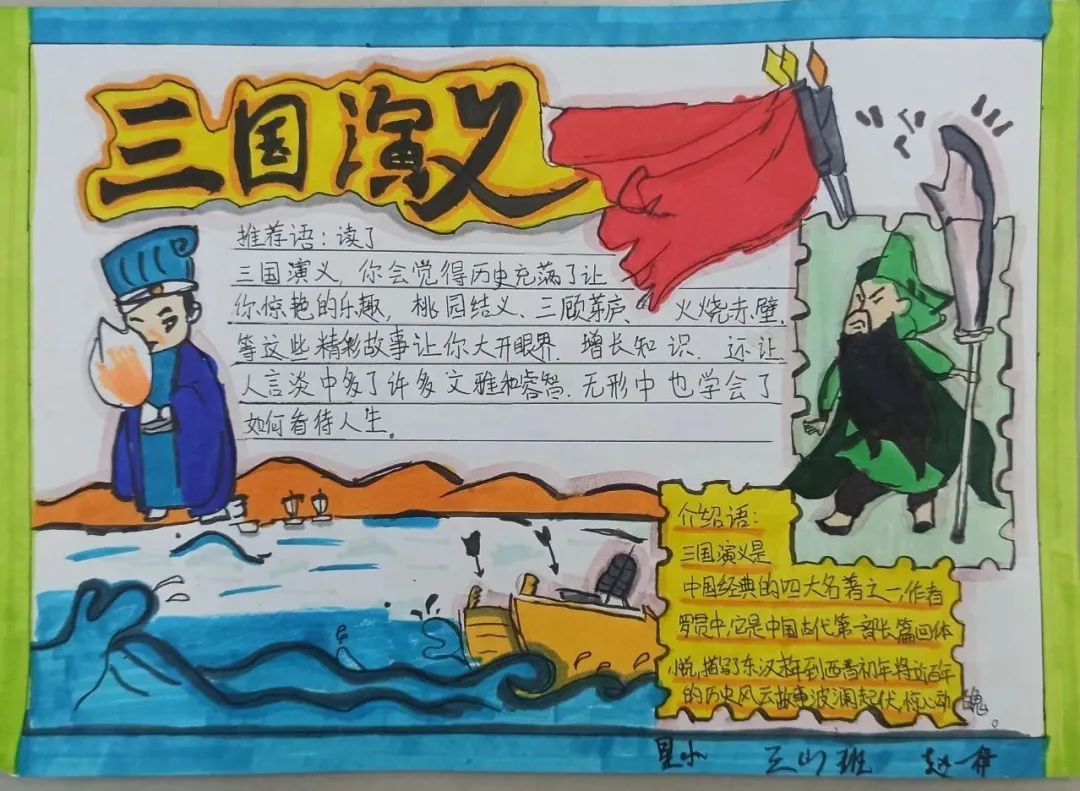 三国演义
推荐语：读了
三国演义，你会觉得历史充满了让
你惊艳的乐趣，桃园结义、三顾茅庐、火烧赤壁、
等这些精彩故事让你大开眼界．增长知识．还让
人言谈中多了许多文雅和睿智．无形中也学会了
如何看待人生。
介绍语：
三国演义是
中国经典的四大名著之一，作者
罗贯中，它是中国古代第一部长篇回体
小说，描写了东汉末年到西晋初年将近百年
的历史风云故事波澜起伏，惊心动魄。
星小 三山班 赵一